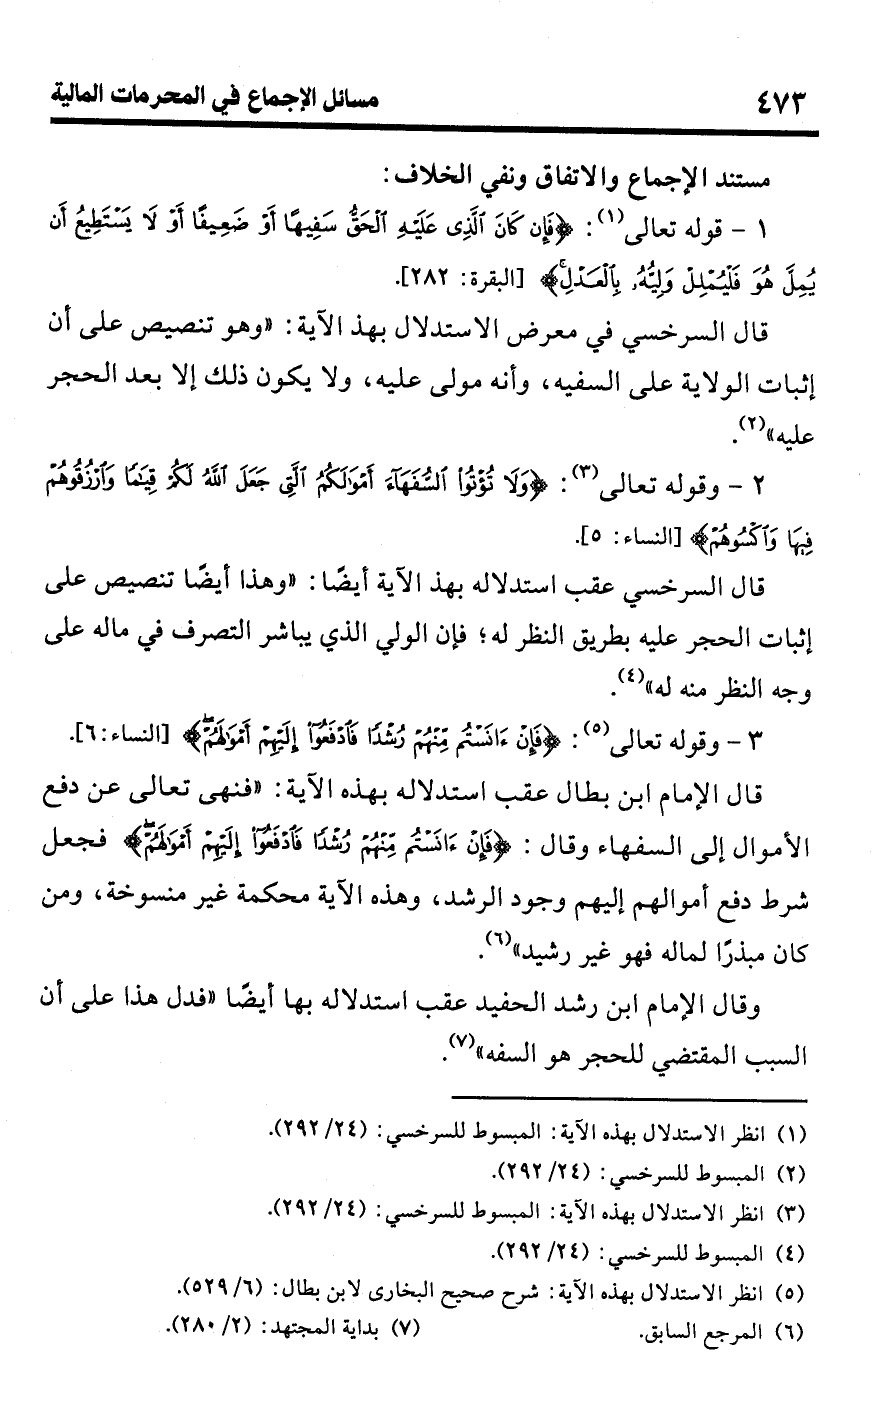 ٤٧٣ مسائل الإجماع في المحرمات المالية
مستند الإجماع والاتفاق ونفي الخلاف:
١ - قوله تعالى(١): ﴿فَإِن كَانَ ٱلَّذِى عَلَيۡهِ ٱلۡحَقُّ سَفِيهًا أَوۡ ضَعِيفًا أَوۡ لَا يَسۡتَطِيعُ أَن
يُمِلَّ هُوَ فَلۡيُمۡلِلۡ وَلِيُّهُۥ بِٱلۡعَدۡلِۚ﴾ [البقرة: ٢٨٢].
قال السرخسي في معرض الاستدلال بهذ الآية: «وهو تنصيص على أن
إثبات الولاية على السفيه، وأنه مولى عليه، ولا يكون ذلك إلا بعد الحجر
عليه»(٢).
٢ - وقوله تعالى(٣): ﴿وَلَا تُؤۡتُوا۟ ٱلسُّفَهَآءَ أَمۡوَٰلَكُمُ ٱلَّتِى جَعَلَ ٱللَّهُ لَكُمۡ قِيَٰمًا وَٱرۡزُقُوهُمۡ
فِيهَا وَٱكۡسُوهُمۡ﴾ [النساء: ٥].
قال السرخسي عقب استدلاله بهذ الآية أيضًا: «وهذا أيضًا تنصيص على
إثبات الحجر عليه بطريق النظر له؛ فإن الولي الذي يباشر التصرف في ماله على
وجه النظر منه له»(٤).
٣ - وقوله تعالى(٥): ﴿فَإِنۡ ءَانَسۡتُم مِّنۡهُمۡ رُشۡدًا فَٱدۡفَعُوٓا۟ إِلَيۡهِمۡ أَمۡوَٰلَهُمۡۖ﴾ [النساء:٦].
قال الإمام ابن بطال عقب استدلاله بهذه الآية: «فنهى تعالى عن دفع
الأموال إلى السفهاء وقال: ﴿فَإِنۡ ءَانَسۡتُم مِّنۡهُمۡ رُشۡدًا فَٱدۡفَعُوٓا۟ إِلَيۡهِمۡ أَمۡوَٰلَهُمۡۖ﴾ فجعل
شرط دفع أموالهم إليهم وجود الرشد، وهذه الآية محكمة غير منسوخة، ومن
كان مبذرًا لماله فهو غير رشيد»(٦).
وقال الإمام ابن رشد الحفيد عقب استدلاله بها أيضًا «فدل هذا على أن
السبب المقتضي للحجر هو السفه»(٧).
(١) انظر الاستدلال بهذه الآية: المبسوط للسرخسي: (٢٩٢/٢٤).
(٢) المبسوط للسرخسي: (٢٩٢/٢٤).
(٣) انظر الاستدلال بهذه الآية: المبسوط للسرخسي: (٢٩٢/٢٤).
(٤) المبسوط للسرخسي: (٢٩٢/٢٤).
(٥) انظر الاستدلال بهذه الآية: شرح صحيح البخارى لابن بطال: (٥٢٩/٦).
(٦) المرجع السابق. (٧) بداية المجتهد: (٢٨٠/٢).